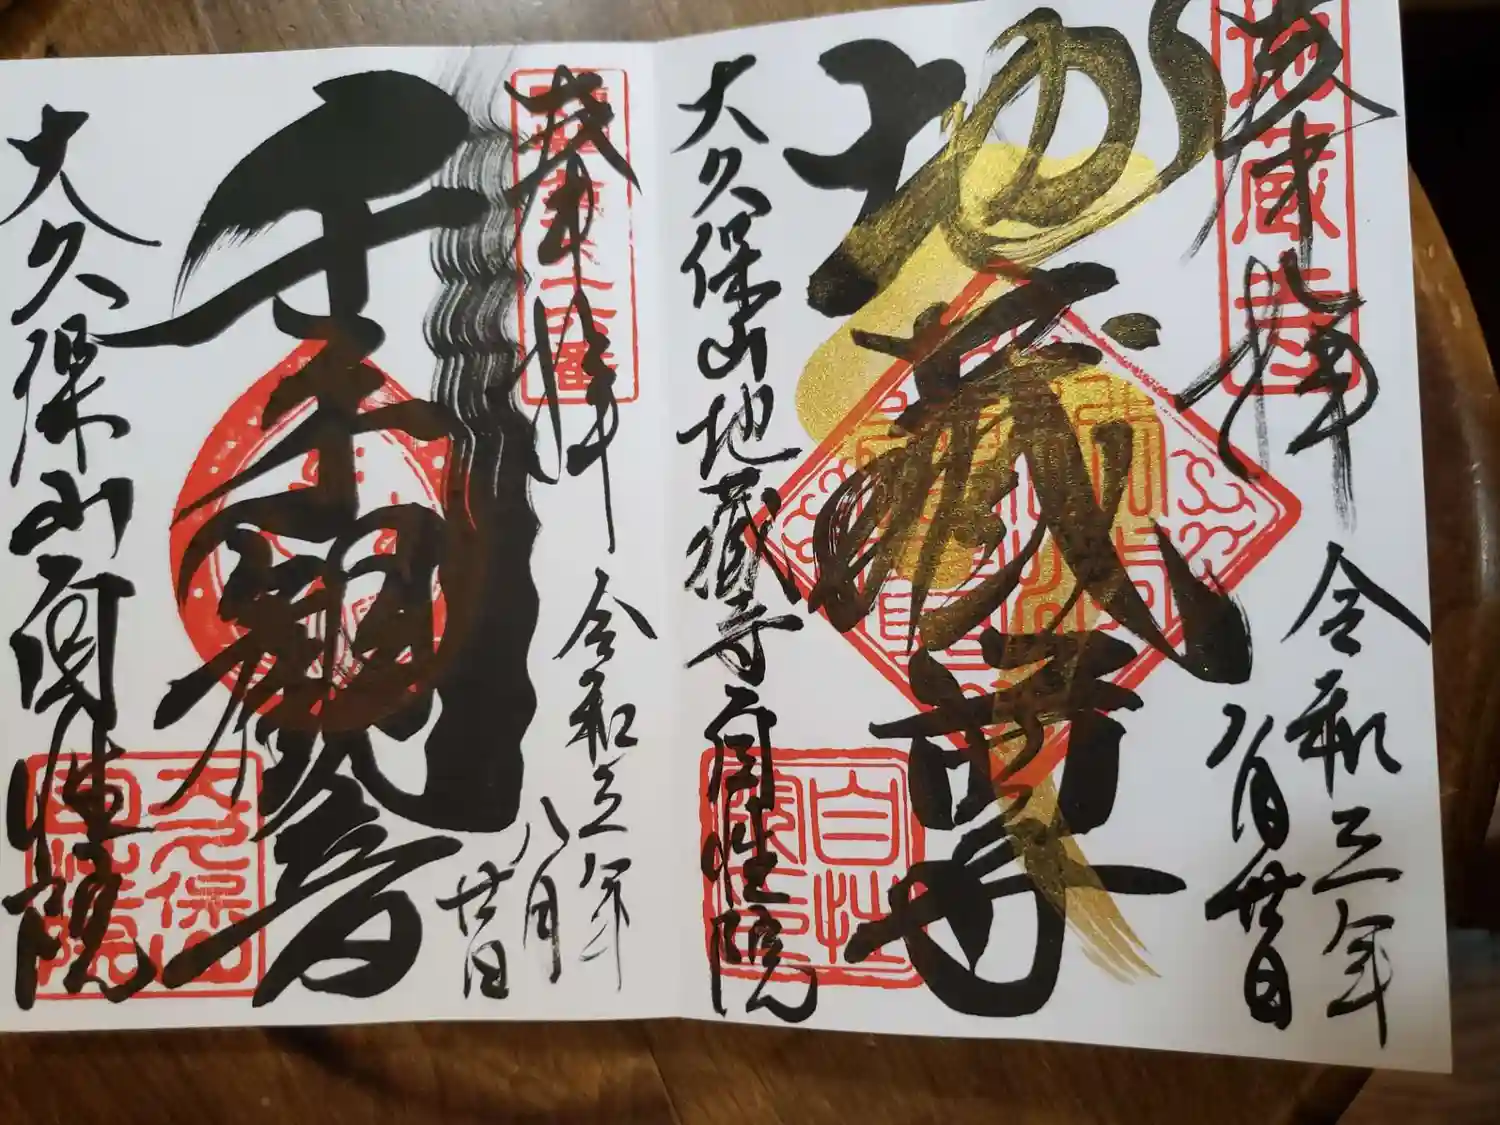 奉拝
令和三年
八月廿日
地蔵尊
大久保山地蔵寺自性院
奉拝
令和三年
八月
廿日
千手観音
大久保山自性院
大久保山
自性院